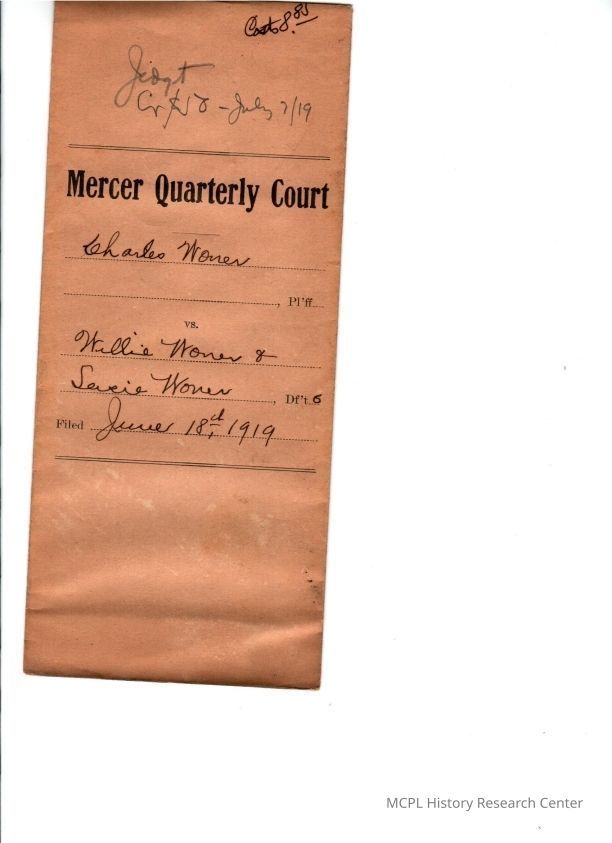 Costs 8.85
Judgt
July 7/19
Mercer Quarterly Court
Charles Woner
, Pl'ff.
vs.
Willie Woner &
Susie Woner , Df't.s
Filed June 18th, 1919
MCPL History Research Center